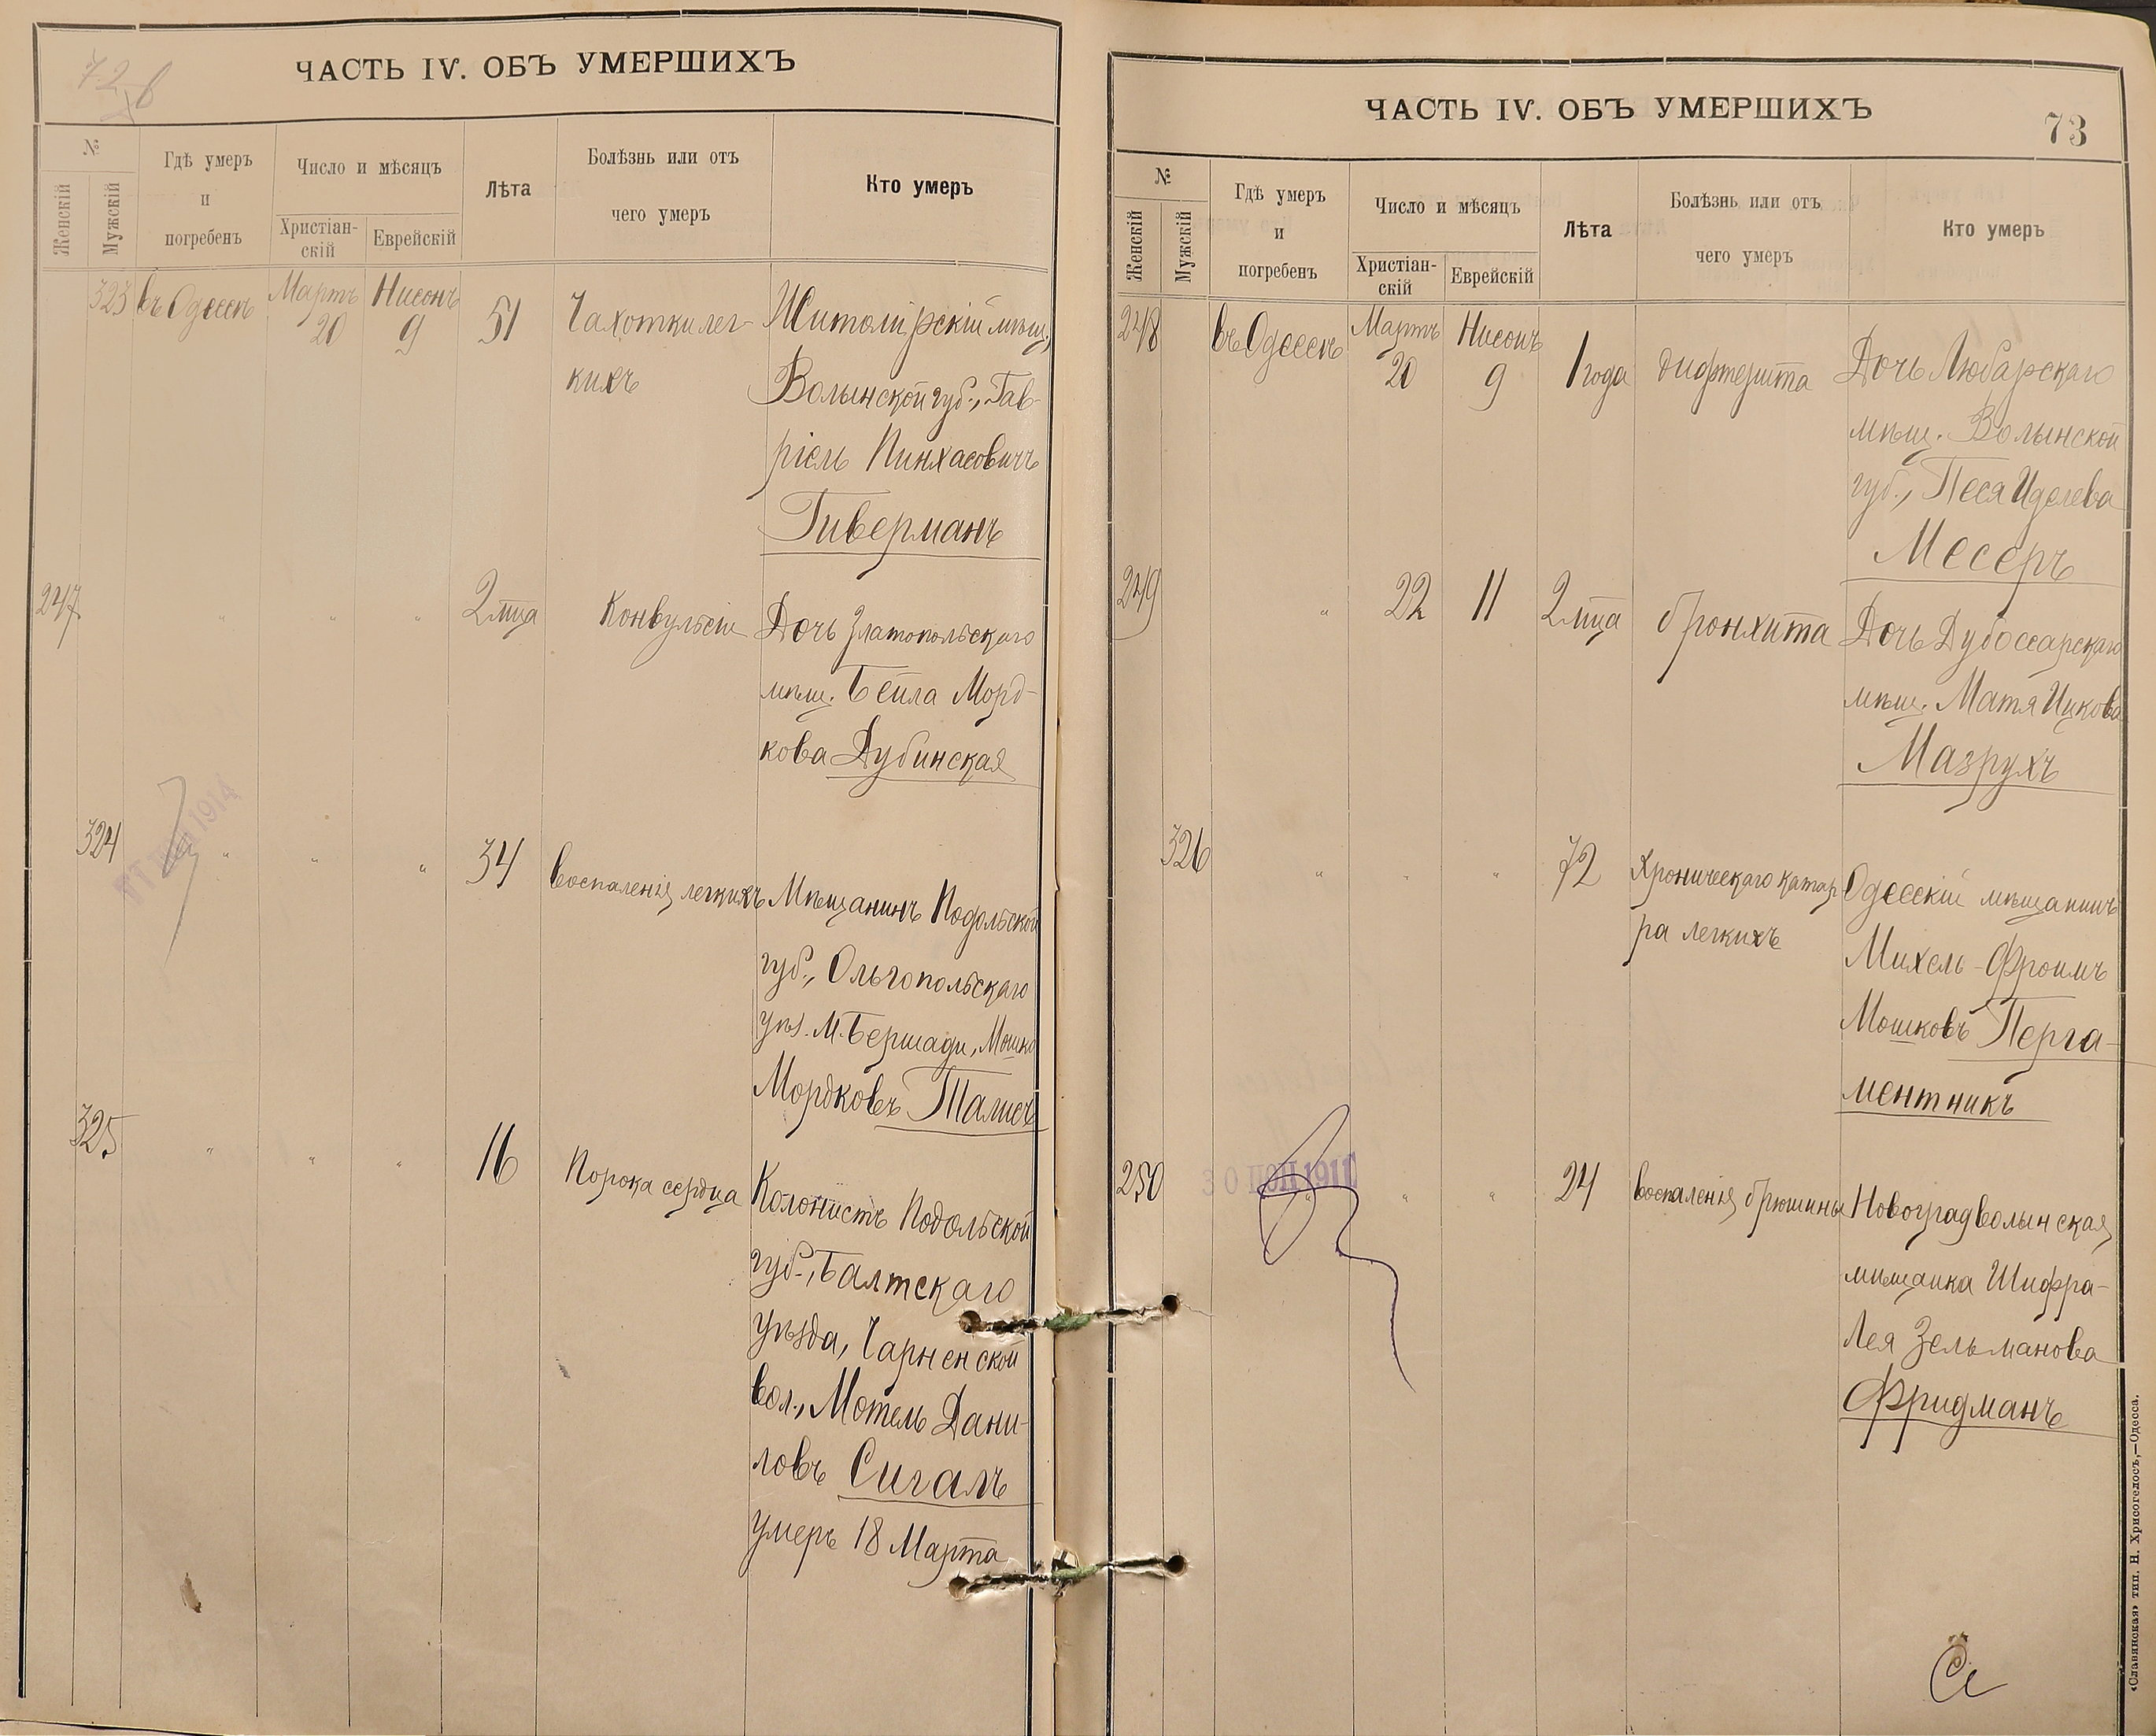 72 б
ЧАСТЬ IV. ОБЪ УМЕРШИХЪ
№
Женскій
Мужскій
Гдѣ умеръ
и
погребенъ
Число и мѣсяцъ
Христіан-
скій
Еврейскій
Лѣта
Болѣзнь или отъ
чего умеръ
Кто умеръ
323 въ Одессѣ Мартъ 20 Нисонъ 9 51 Чахотки лег- Житомірскій мѣщ.,
кихъ Волынской губ., Гав-
ріель Пинхасовичъ
Гиверманъ
247 " " " 2 м-ца Конвульсіи Дочь Златопольскаго
мѣщ. Бейла Морд-
кова Дубинская
1914
324 " " " 34 воспаленія легкихъ Мѣщанинъ Подольской
губ., Ольгопольскаго
уѣз. М. Бершади, Мошко
Мордковъ Талисъ
325 " " " 16 Порока сердца Колонистъ Подольской
губ., Балтскаго
уѣзда, Чарненской
вол., Мотель Дани-
ловъ Сигалъ
умеръ 18 Марта
ЧАСТЬ IV. ОБЪ УМЕРШИХЪ
73
№
Женскій
Мужскій
Гдѣ умеръ
и
погребенъ
Число и мѣсяцъ
Христіан-
скій
Еврейскій
Лѣта
Болѣзнь или отъ
чего умеръ
Кто умеръ
248 въ Одессѣ Мартъ 20 Нисонъ 9 1 года дифтерита Дочь Любарскаго
мѣщ. Волынской
губ., Песя Иделева
Месеръ
249 " 22 11 2 м-ца бронхита Дочь Дубоссарскаго
мѣщ. Матя Ицкова
Мазрухъ
326 " " " 72 Хроническаго катар- Одесскій мѣщанинъ
ра легкихъ Михель-Фроимъ
Мошковъ Перга-
ментникъ
250 " " " 24 воспаленія брюшины Новоградволынская
мѣщанка Шифра-
Лея Зельманова
Фридманъ
«Славянская» тип. Н. Хрисогелосъ,—Одесса.